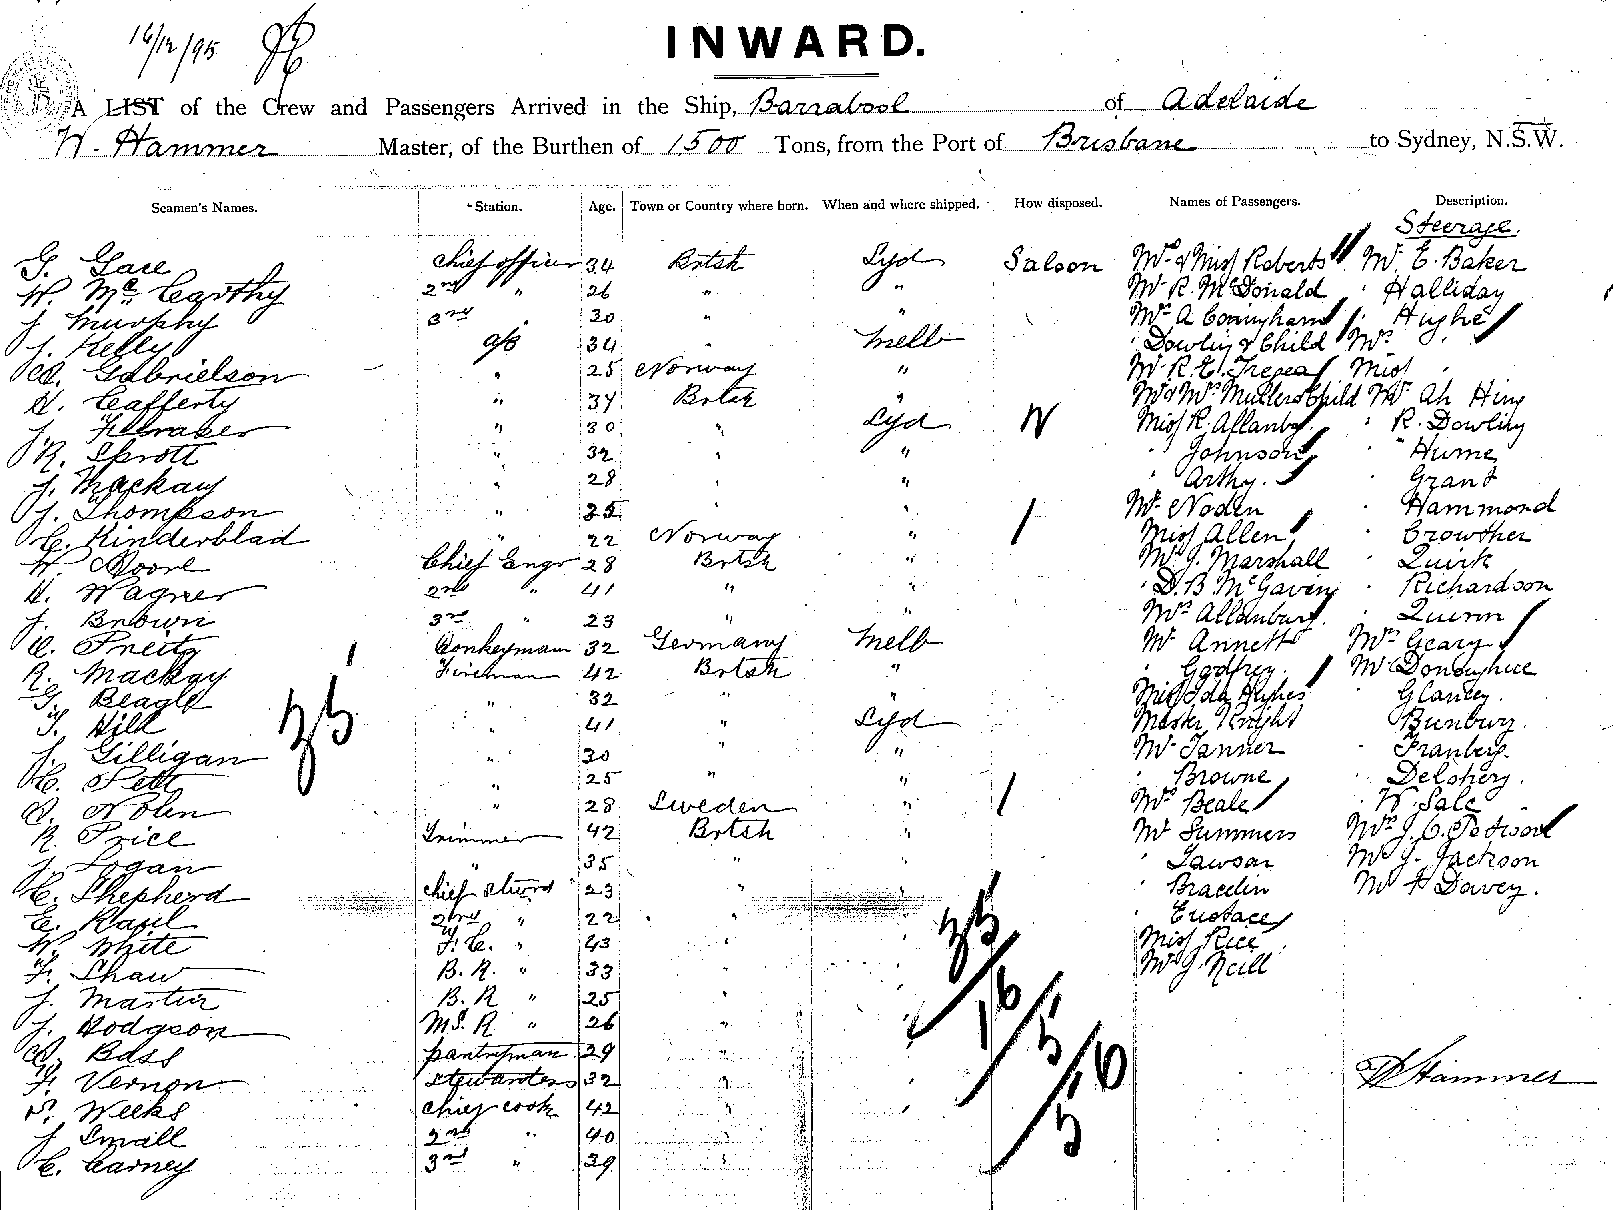 16/12/95
INWARD.
A LIST of the Crew and Passengers Arrived in the Ship, Barrabool of Adelaide
W. Hammer Master, of the Burthen of 1500 Tons, from the Port of Brisbane to Sydney, N.S.W.
Seamen's Names. Station. Age. Town or Country where born. When and where shipped. How disposed. Names of Passengers. Description.
Steerage.
G. Gare Chief officer 34 Brtsh Syd Saloon Mrs & Miss Roberts Mr E. Baker
W. McCarthy 2nd " 26 " " Mr R. McDonald " Halliday
J. Murphy 3rd " 30 " Mrs A Conyham " Hughes
J. Kelly a/b 34 " Melb " Dowling & Child Mrs "
Gabrielson " 25 Norway " Mr R. E. Miss "
H. Cafferty " 34 Brtsh " Mr & Mrs Mullers Child Mr Ah Hing
J. " 30 " Syd N Miss R. Allanby " R. Dowling
R. Sprott " 32 " " " Johnson " Hume
J. Mackay " 28 " " " Arthy. " Grant
J. Thompson " 25 " " Mr Noden " Hammond
C. Kinderblad " 22 Norway " Miss Allen " Crowther
W. Moore Chief Engr 28 Brtsh " Mr J. Marshall " Quirk
H. Wagner 2nd " 41 " " " D. B McGavin Richardson
J. Brown 3rd " 23 " " Mrs Allanbury. " Quinn
Donkeyman 32 Germany Melb Mr Annett Mrs Geary
R. Mackay Fireman 42 Brtsh " " Godfrey. Mr Donoughue
G. Beagle " 32 " " Miss Ida Hughes " Glancey.
T. Hill " 41 " Syd Master Knight " Bunbury.
35
J. Gilligan " 30 " " Mr Tanner " Franberg.
C. Pett " 25 " " " Browne " Delohery.
Nolen " 28 Sweden " Mrs Beale " W. Sale
R. Price Trimmer 42 Brtsh " Mr Summers Mrs J. C.
J. Logan " 35 " " Lawson Mr J. Jackson
C. Shepherd chief stwrd 23 " " Bracelin Mr F Davey.
E. Raul 2nd " 22 " " Eustace
W. White F. C. " 43 " Miss Rice
F. Shaw B. R. " 33 " Mr J. Neill
J. Martin B. R " 25 "
J. Hodgson M.S. R " 26 "
Bass pantryman 29 "
F. Vernon stewardess 32 " W Hammer
Weeks chief cook 42 "
J. Small 2nd " 40
C. Carney 3rd " 39
35
16
5
56